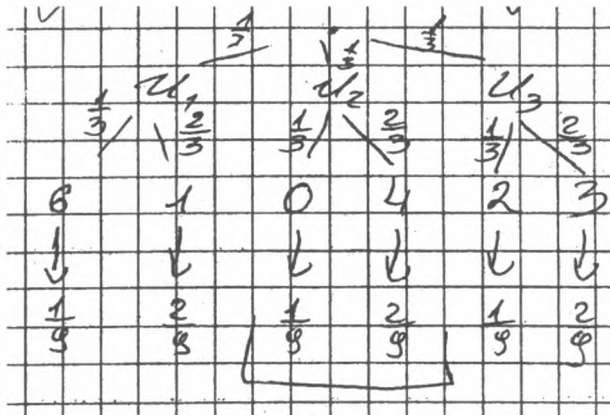 1/3 1/3 1/3
U₁ U₂ U₃
1/3 2/3 1/3 2/3 1/3 2/3
6 1 0 4 2 3
↓ ↓ ↓ ↓ ↓ ↓
1/9 2/9 1/9 2/9 1/9 2/9